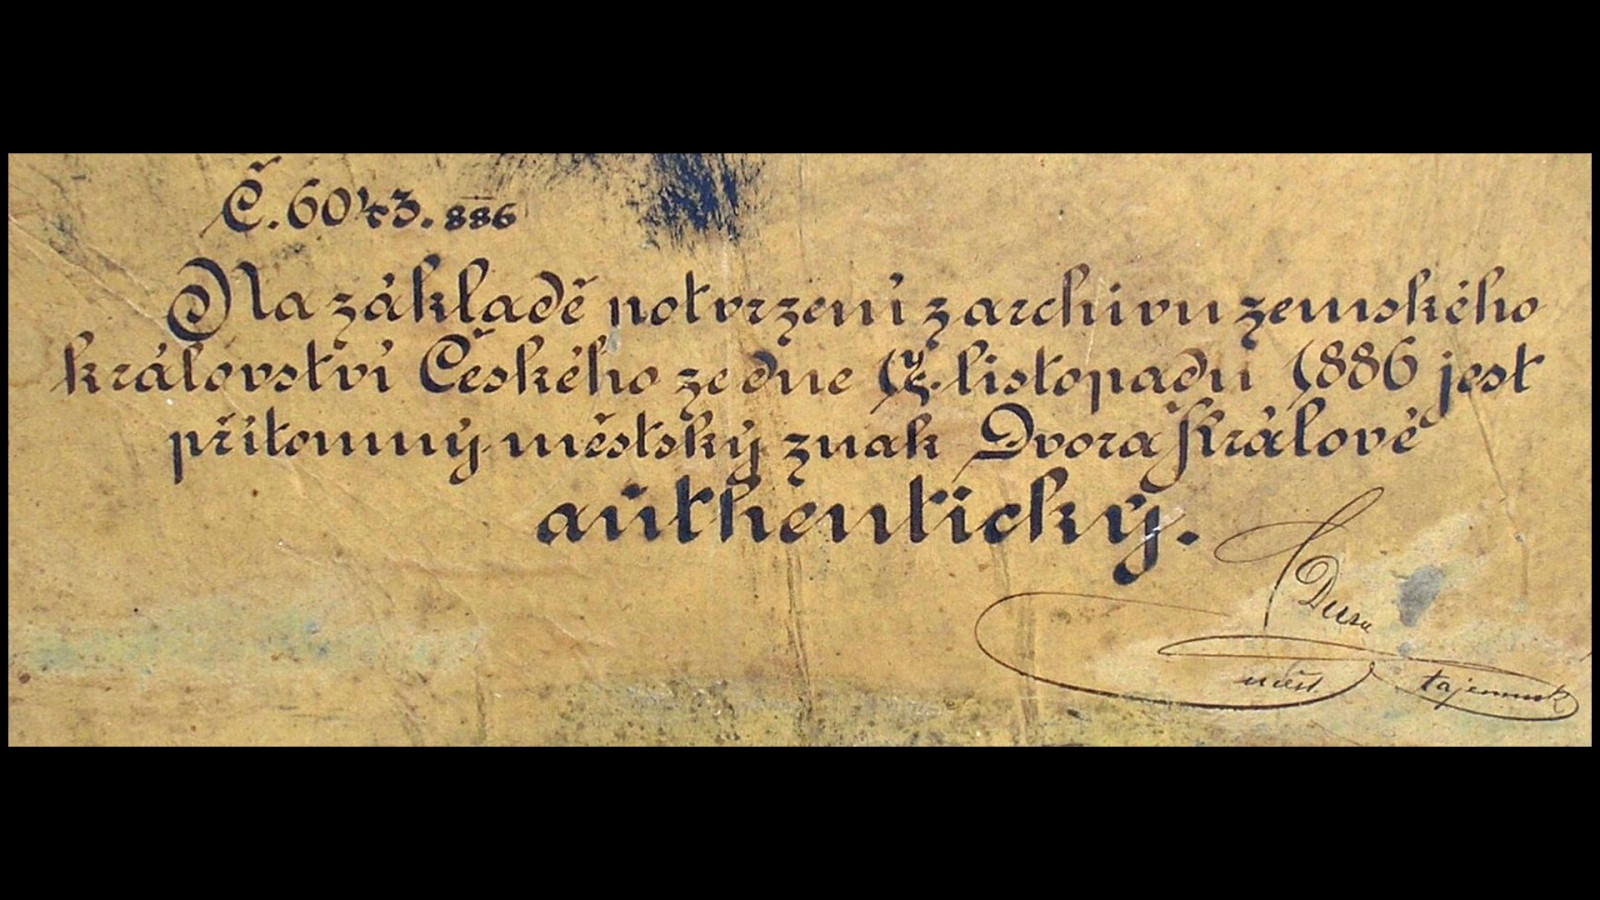 Č. 6043. 886
Na základě potvrzení z archivu zemského
království Českého ze dne 17. listopadu 1886 jest
přítomný městský znak Dvora Králové
authentický.
měst. tajemník